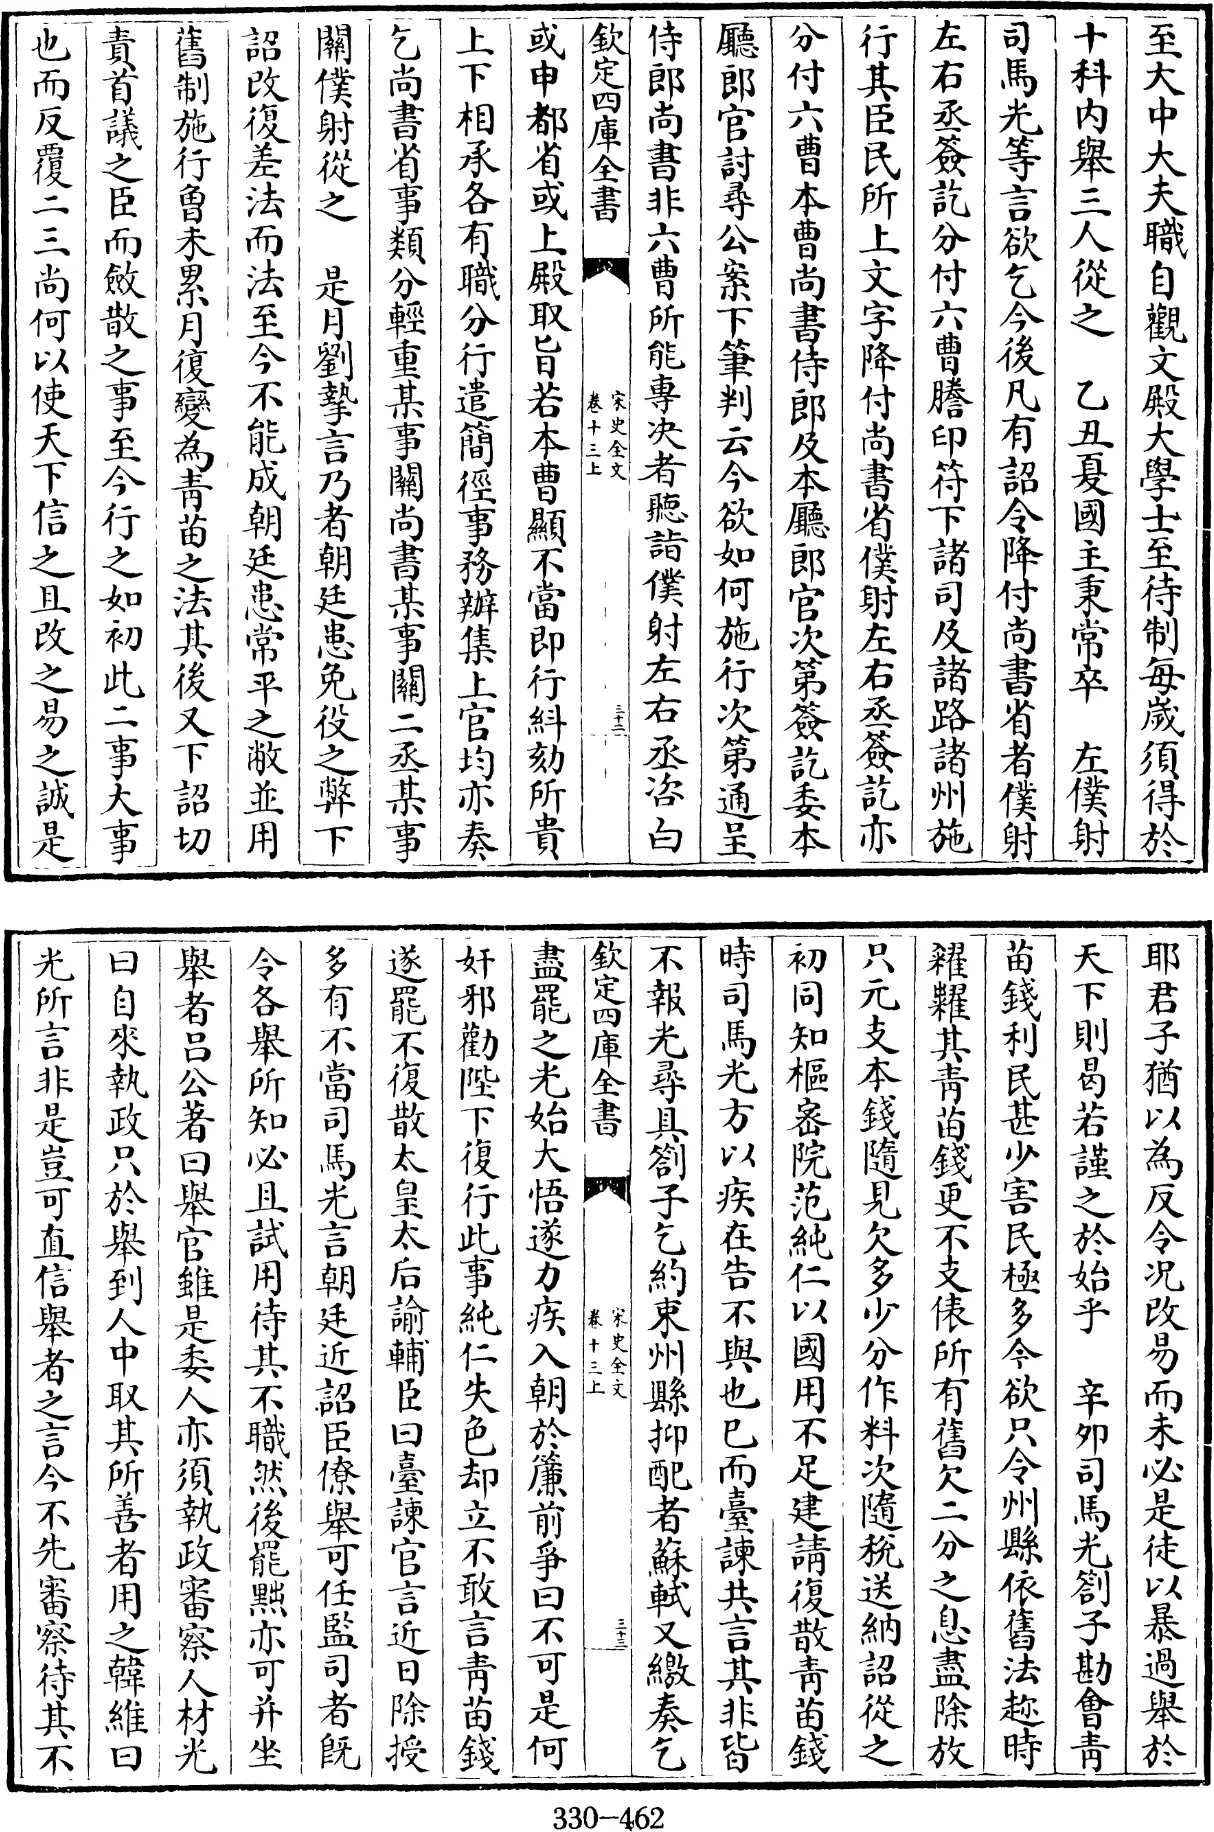 至大中大夫職自觀文殿大學士至待制每歲須得於
十科内舉三人從之　乙丑夏國主秉常卒　左僕射
司馬光等言欲乞今後凡有詔令降付尚書省者僕射
左右丞簽訖分付六曹謄印符下諸司及諸路諸州施
行其臣民所上文字降付尚書省僕射左右丞簽訖亦
分付六曹本曹尚書侍郎及本廳郎官次第簽訖委本
廳郎官討尋公案下筆判云今欲如何施行次第通呈
侍郎尚書非六曹所能專决者聽詣僕射左右丞咨白
欽定四庫全書
宋史全文
卷十三上
三十二
或申都省或上殿取旨若本曹顯不當即行糾劾所貴
上下相承各有職分行遣簡徑事務辦集上官均亦奏
乞尚書省事類分輕重某事關尚書某事關二丞某事
關僕射從之　是月劉摯言乃者朝廷患免役之弊下
詔改復差法而法至今不能成朝廷患常平之敝並用
舊制施行曾未累月復變為青苗之法其後又下詔切
責首議之臣而斂散之事至今行之如初此二事大事
也而反覆二三尚何以使天下信之且改之易之誠是
耶君子猶以為反令况改易而未必是徒以暴過舉於
天下則曷若謹之於始乎　辛卯司馬光劄子勘會青
苗錢利民甚少害民極多今欲只令州縣依舊法趂時
糴糶其青苗錢更不支俵所有舊欠二分之息盡除放
只元支本錢隨見欠多少分作料次隨稅送納詔從之
初同知樞密院范純仁以國用不足建請復散青苗錢
時司馬光方以疾在告不與也已而臺諫共言其非皆
不報光尋具劄子乞約束州縣抑配者蘇軾又繳奏乞
欽定四庫全書
宋史全文
卷十三上
三十三
盡罷之光始大悟遂力疾入朝於簾前爭曰不可是何
奸邪勸陛下復行此事純仁失色却立不敢言青苗錢
遂罷不復散太皇太后諭輔臣曰臺諫官言近日除授
多有不當司馬光言朝廷近詔臣僚舉可任監司者既
令各舉所知必且試用待其不職然後罷黜亦可并坐
舉者呂公著曰舉官雖是委人亦須執政審察人材光
曰自來執政只於舉到人中取其所善者用之韓維曰
光所言非是豈可直信舉者之言今不先審察待其不
330-462